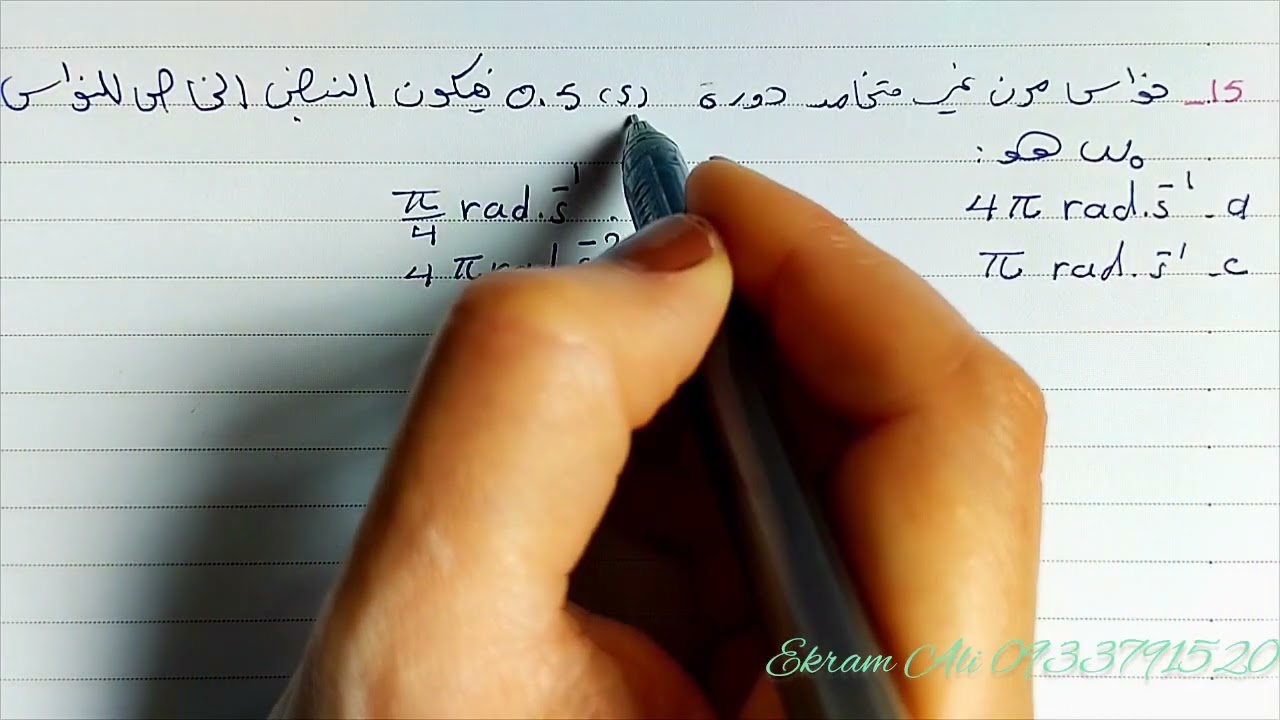 15_ نواس مرن غير متخامد دورة 0.5 (s) فيكون النبض الخاص للنواس
ω₀ هو :
a - 4π rad.s⁻¹
π/4 rad.s⁻¹
c - π rad.s⁻¹
4π rad s⁻²
Ekram Ali 0933791520